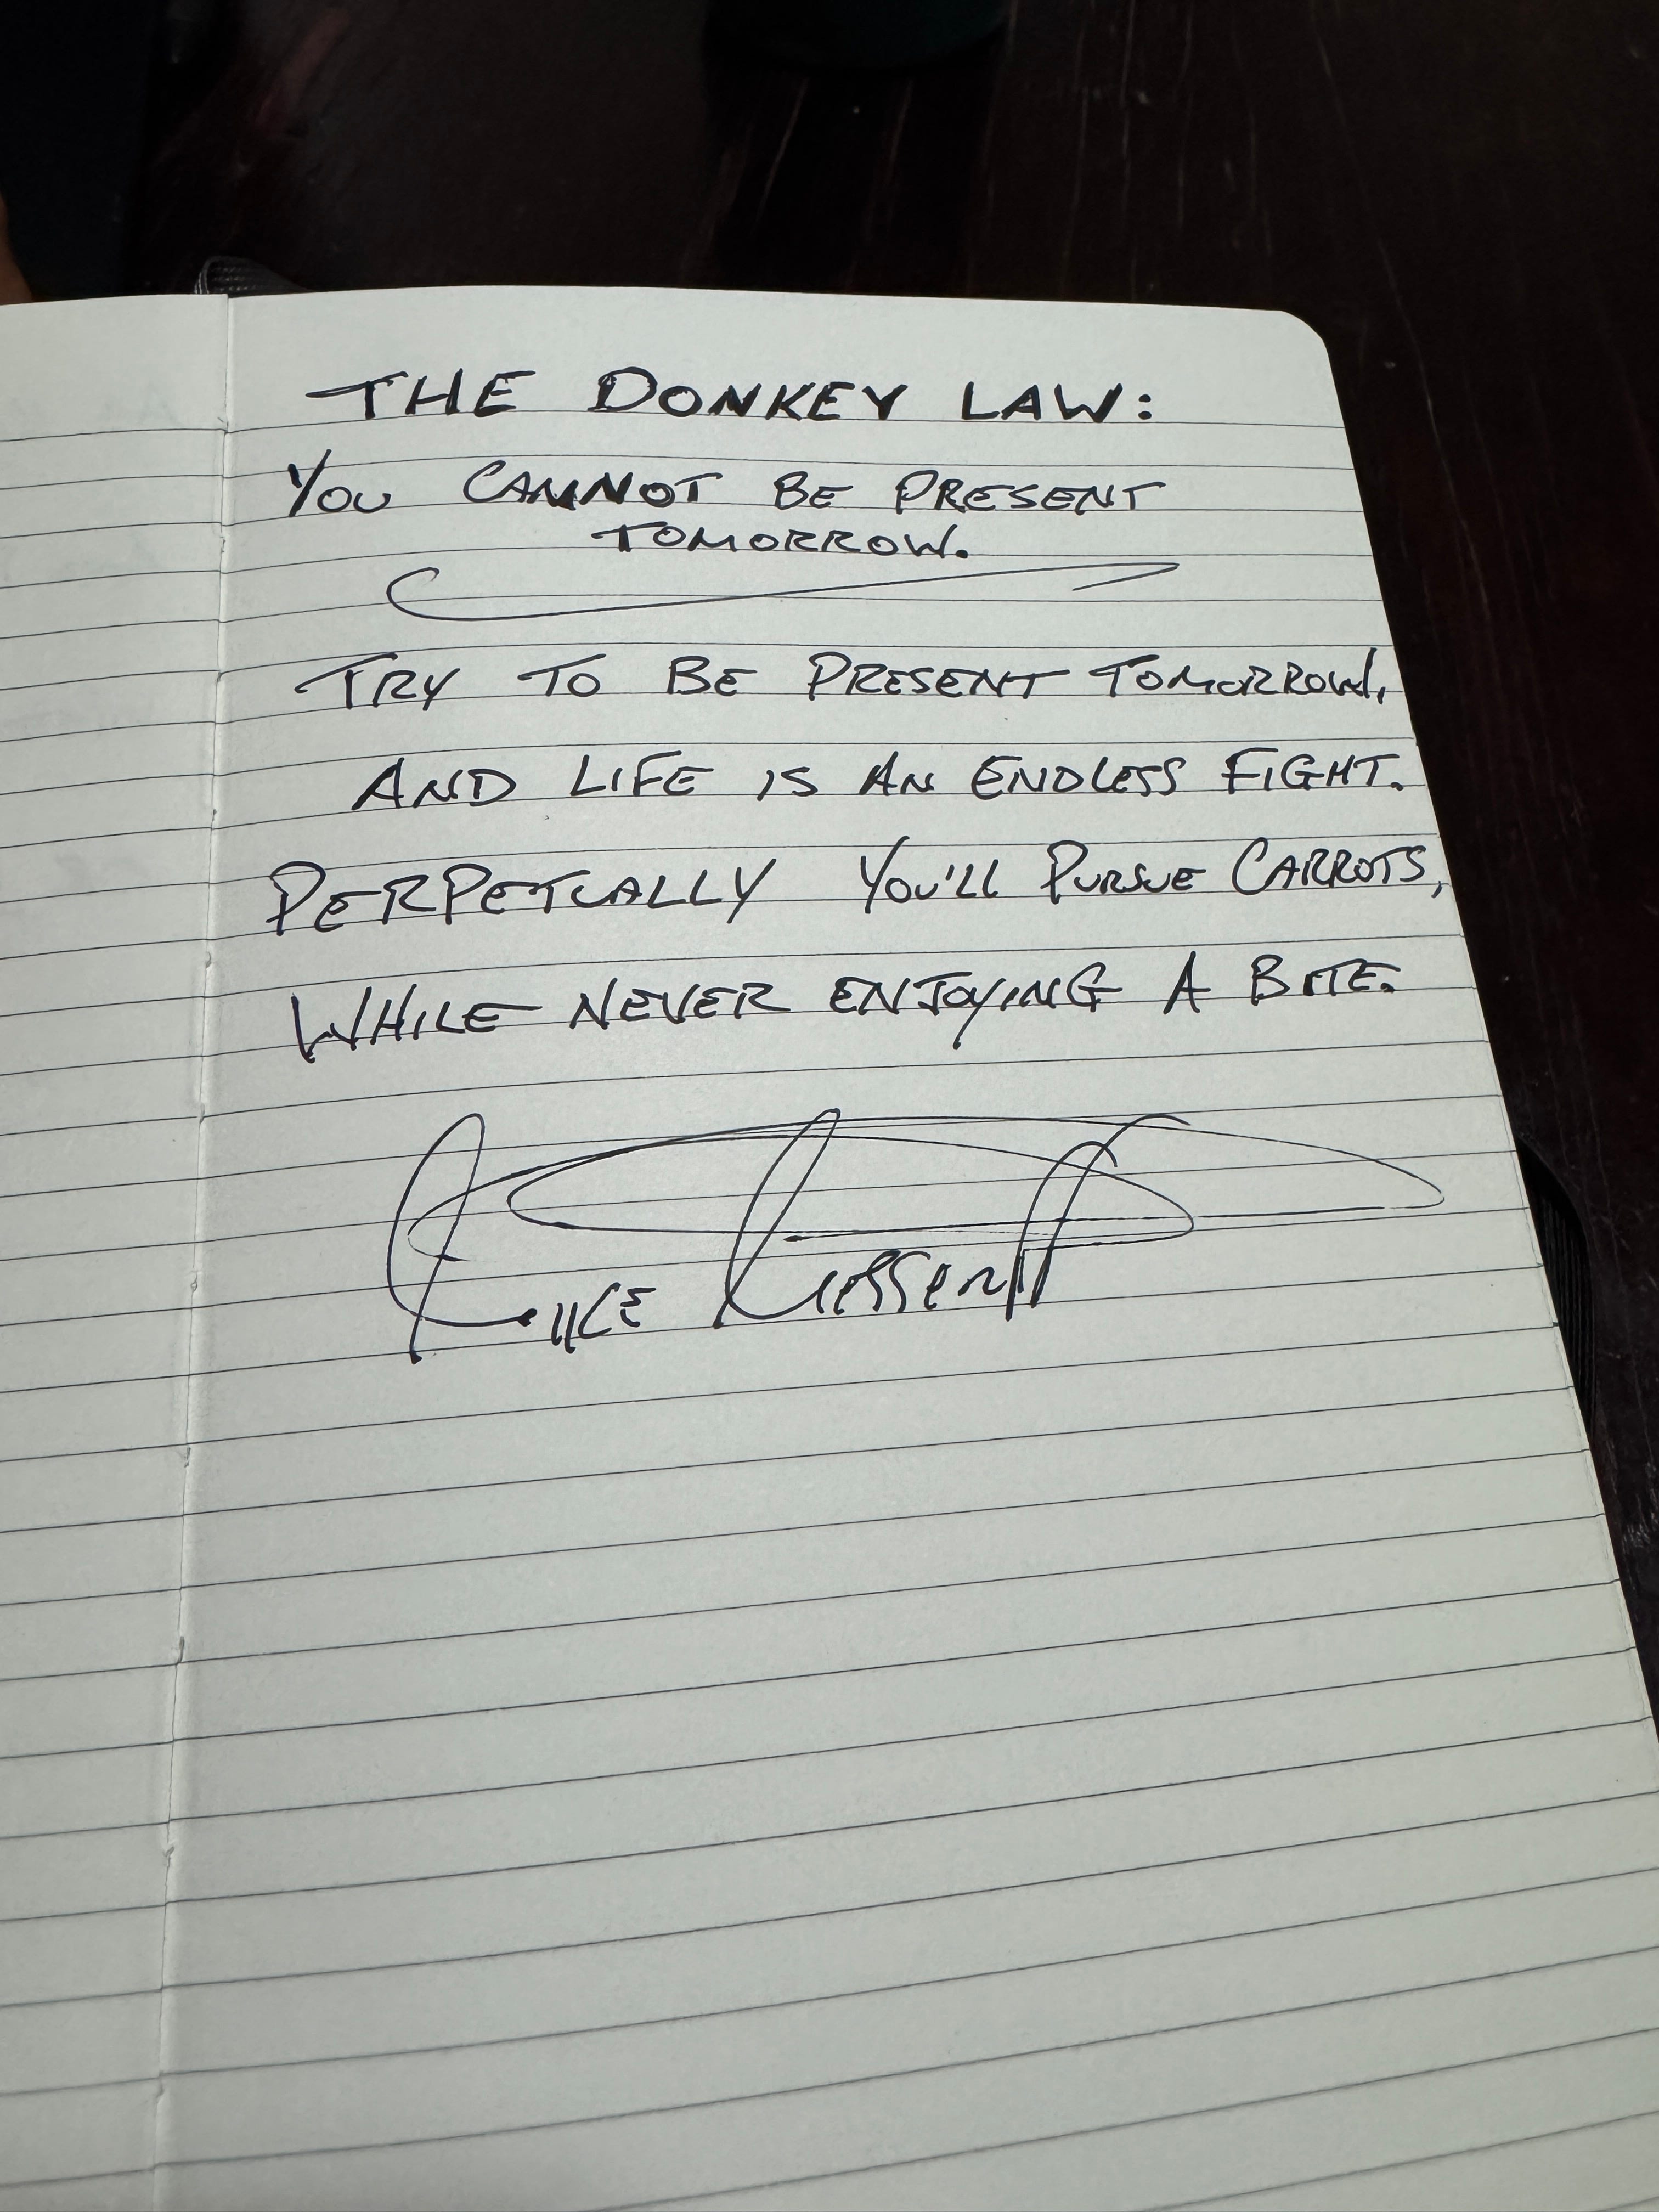 THE DONKEY LAW:
YOU CANNOT BE PRESENT
TOMORROW.
TRY TO BE PRESENT TOMORROW,
AND LIFE IS AN ENDLESS FIGHT.
PERPETUALLY YOU'LL PURSUE CARROTS,
WHILE NEVER ENJOYING A BITE.